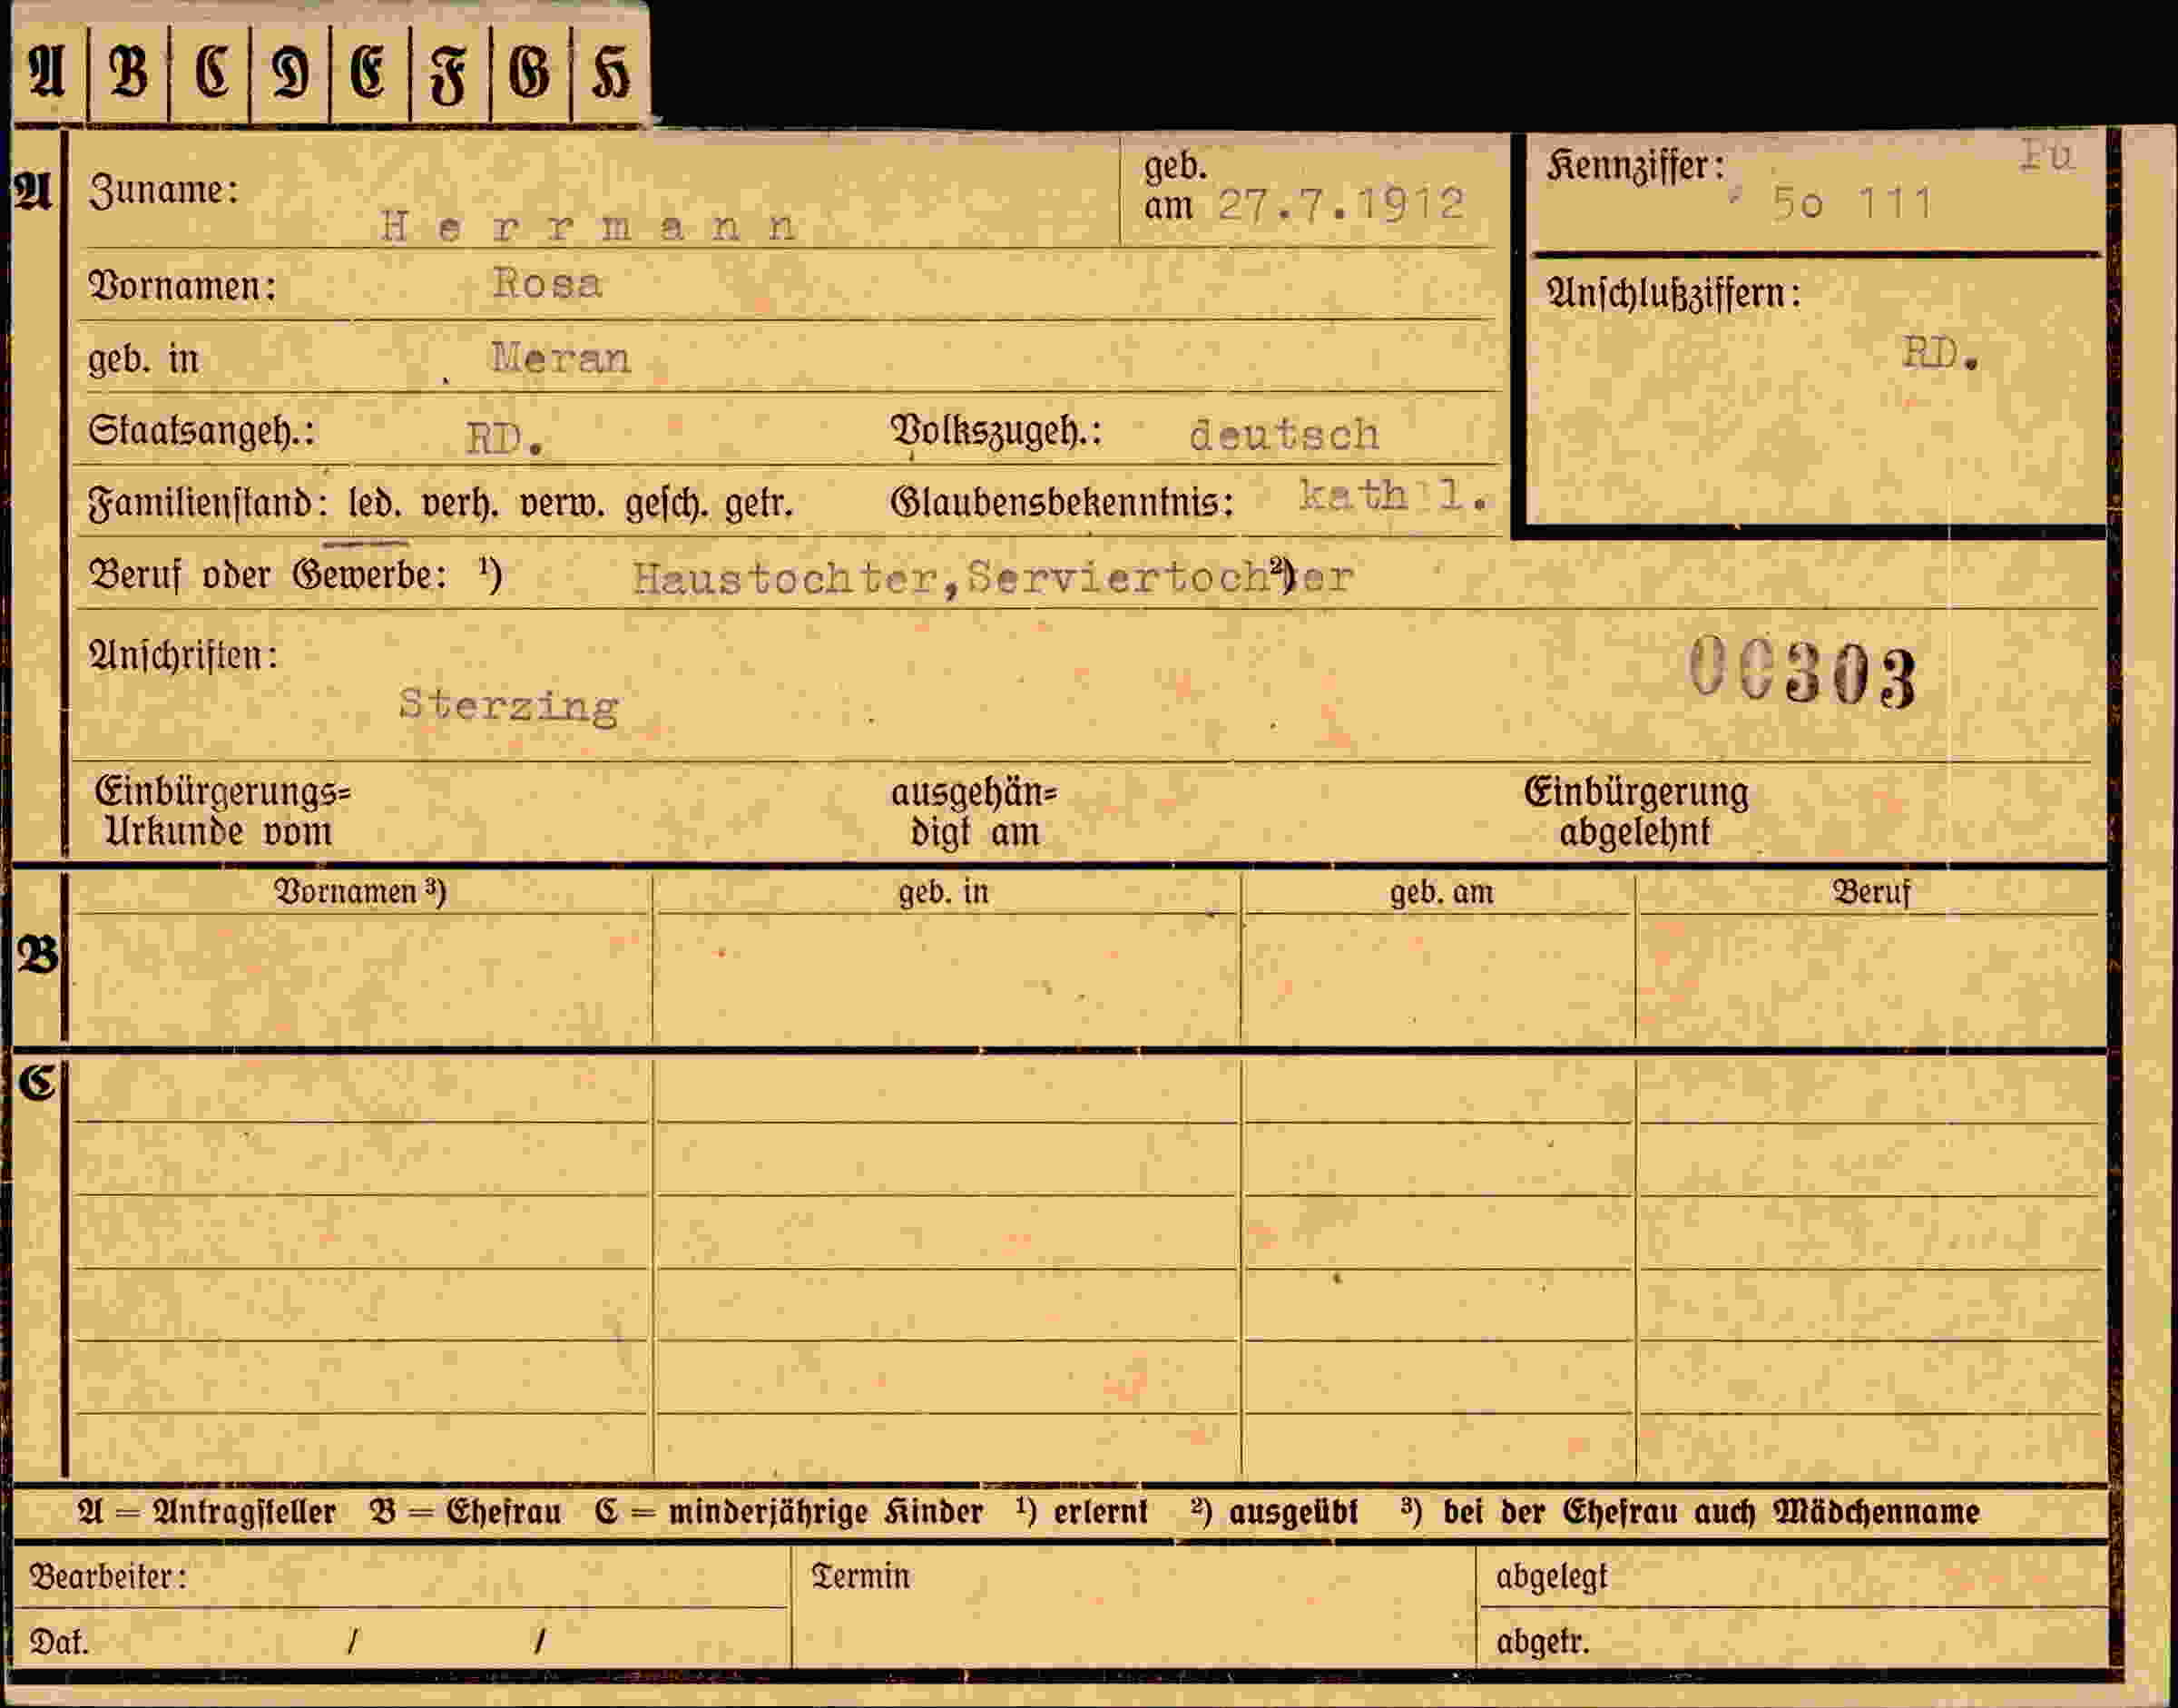 A B C D E F G H
A
Zuname: Herrmann
geb. am 27.7.1912
Kennziffer: 5o 111
Fu
Vornamen: Rosa
Anschlußziffern:
RD.
geb. in Meran
Staatsangeh.: RD. Volkszugeh.: deutsch
Familienstand: led. verh. verw. gesch. getr. Glaubensbekenntnis: kath l.
Beruf oder Gewerbe: ¹) Haustochter,Serviertoch²)er
Anschriften:
00303
Sterzing
Einbürgerungs=
Urkunde vom
ausgehän=
digt am
Einbürgerung
abgelehnt
Vornamen ³) geb. in geb. am Beruf
B
C
A = Antragsteller B = Ehefrau C = minderjährige Kinder ¹) erlernt ²) ausgeübt ³) bei der Ehefrau auch Mädchenname
Bearbeiter: Termin abgelegt
Dat. / / abgetr.